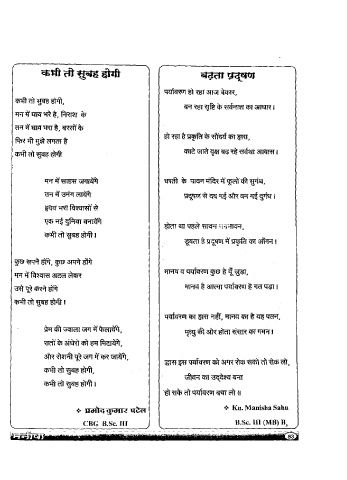 कभी तो सुबह होगी
कभी तो सुबह होगी,
मन में घाव भरे है, निराश के
तन में घाव भरा है, बरसों के
फिर भी मुझे लगता है
कभी तो सुबह होगी
मन में साहस जगायेंगे
तन में उमंग लायेंगे
हृदय भरा विश्वासों से
एक नई दुनिया बनायेंगे
कभी तो सुबह होगी।
कुछ सपने होंगे, कुछ अपने होंगे
मन में विश्वास अटल लेकर
उसे पूरे करने होंगे
कभी तो सुबह होगी।
प्रेम की ज्वाला जग में फैलायेंगे,
रातों के अंधेरो को हम मिटायेंगे,
और रोशनी पूरे जग में कर जायेंगे,
कभी तो सुबह होगी,
कभी तो सुबह होगी।
❖ प्रमोद कुमार पटेल
CBG B.Sc. III
बढ़ता प्रदूषण
पर्यावरण हो रहा आज बेअसर,
बन रहा सृष्टि के सर्वनाश का आधार।
हो रहा है प्रकृति के सौंदर्य का ह्रास,
काटे जाते वृक्ष बढ़ रहे सर्वथा आवास।
धरती के पावन मंदिर में फूलों की सुगंध,
प्रदूषण से दब गई और बन गई दुर्गंध।
होता था पहले सावन मनभावन,
डूबता है प्रदूषण में प्रकृति का आँगन।
मानव व पर्यावरण कुछ हे यूँ जुड़ा,
मानव है आत्मा पर्यावरण है घड़ा।
पर्यावरण का ह्रास नहीं, मानव का है यह पतन,
मृत्यु की ओर होता संसार का गमन।
ह्रास इस पर्यावरण को अगर रोक सको तो रोक लो,
जीवन का उद्देश्य बना
हो सके तो पर्यावरण बचा लो॥
❖ Ku. Manisha Sahu
B.Sc. III (MB) B,
मनीषा
83